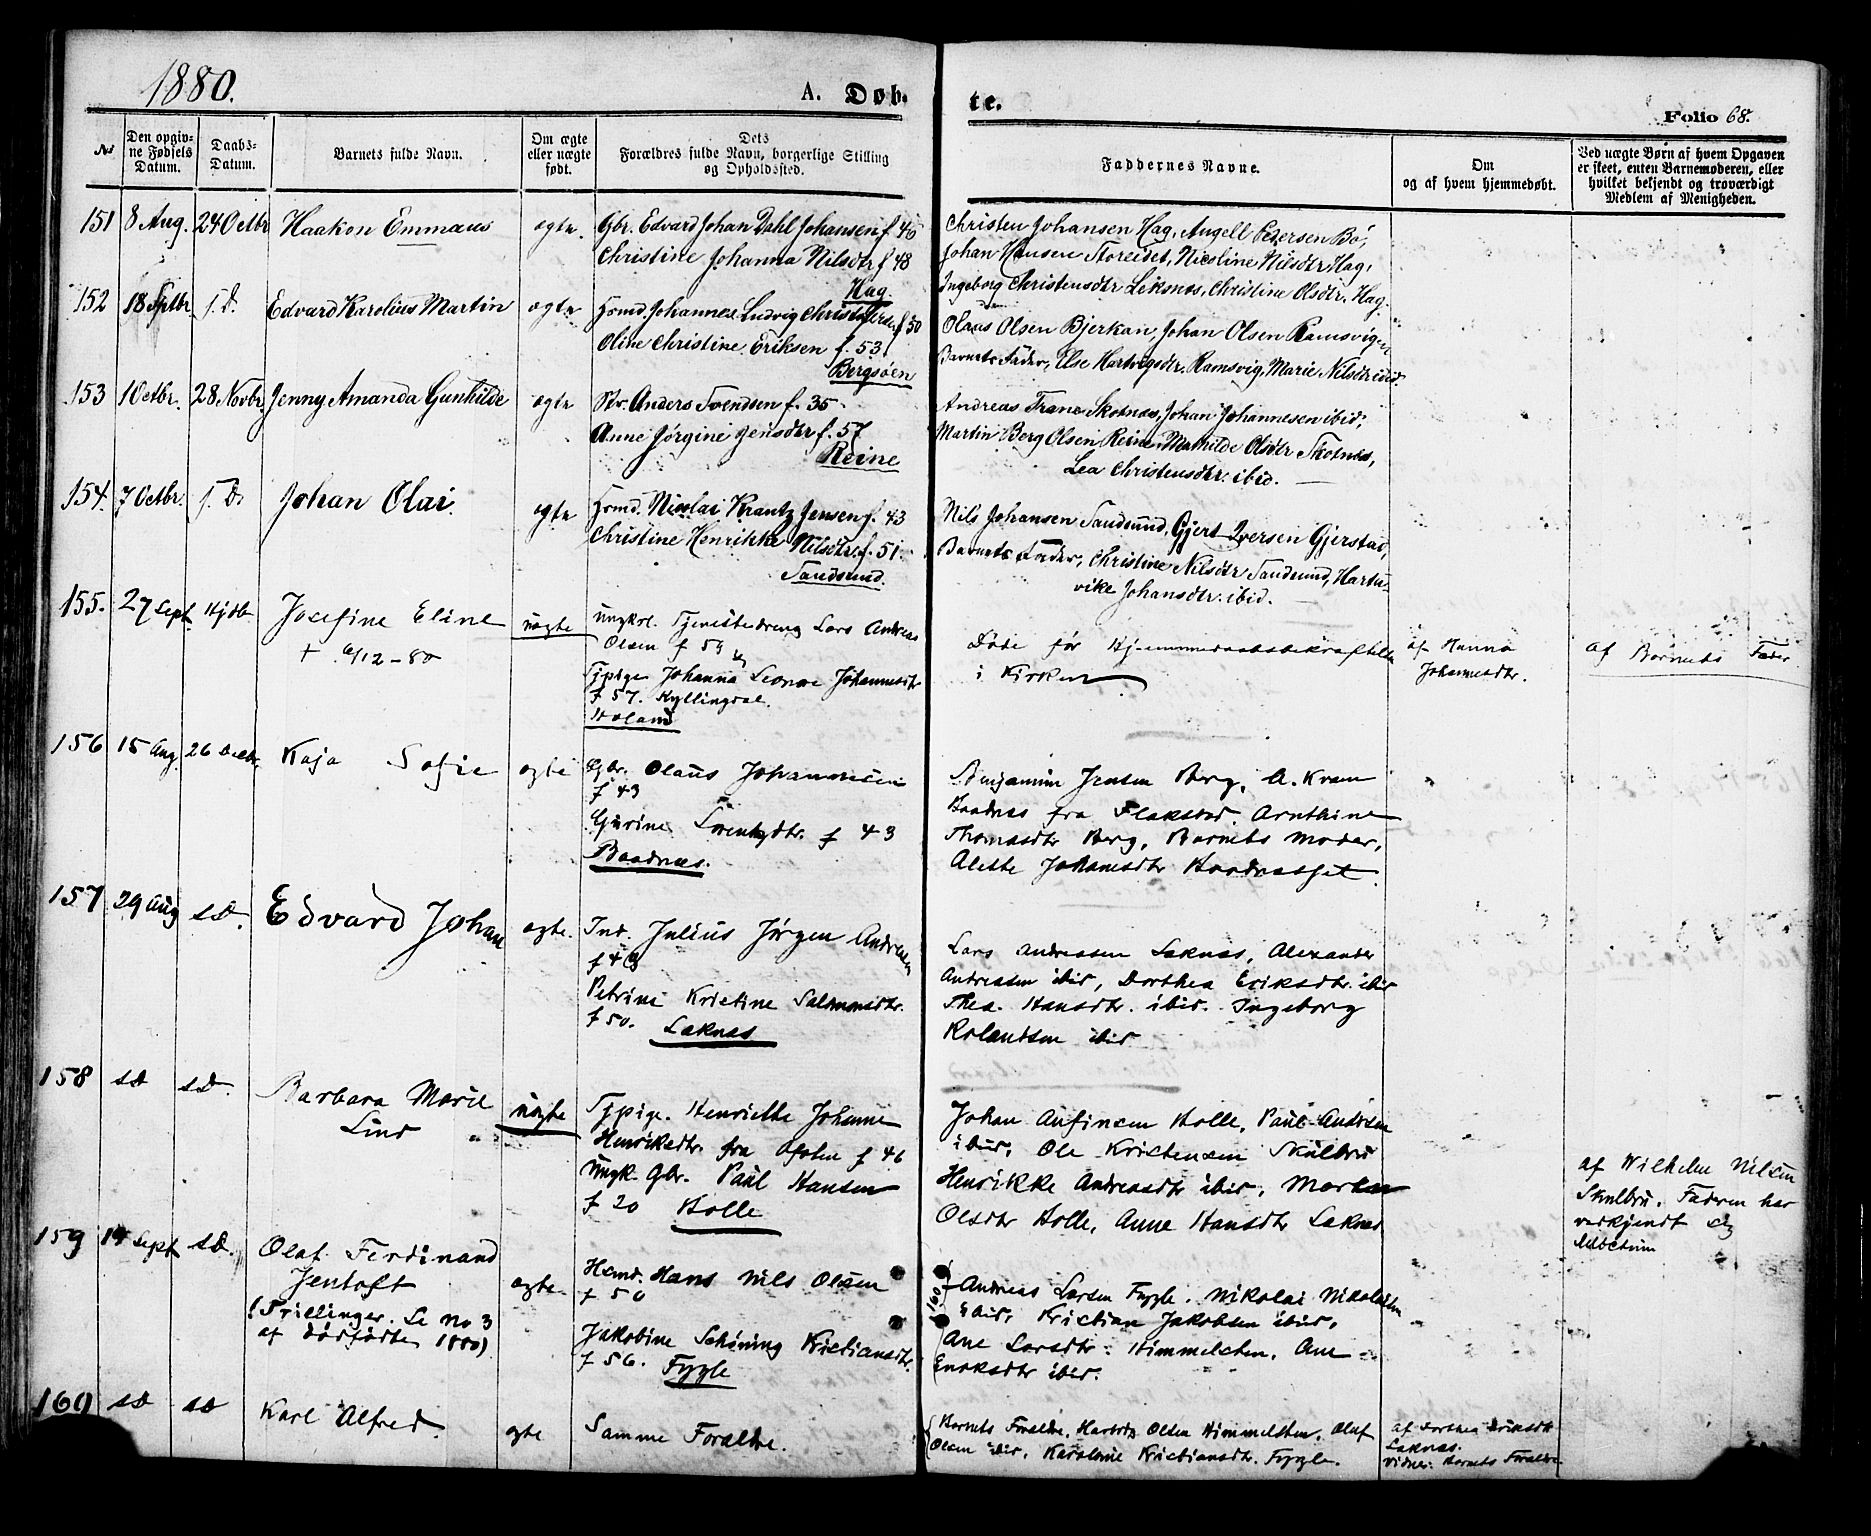 1880.
A. Døb-
te.
Folio 68.
No
Den opgiv-
ne Fødsels
Datum.
Daabs-
Datum.
Barnets fulde Navn.
Om ægte
eller uægte
født.
Dets
Forældres fulde Navn, borgerlige Stilling
og Opholdssted.
Faddernes Navne.
Om
og af hvem hjemmedøbt.
Ved uægte Børn af hvem Opgaven
er skeet, enten Barnemoderen, eller
hvilket bekjendt og troværdigt
Medlem af Menigheden.
151 8 Aug. 24 Octbr Haakon Emmaus ægte.
Gbr. Edvard Johan Dahl Johansen f. 46
Christine Johanna Nilsdtr f 48
Hag
Christen Johansen Hag, Angell Pedersen Bø,
Johan Hansen Storeidet, Nicoline Nilsdtr Hag,
Ingeborg Christensdtr Liknes, Christine Olsdtr. Hag.
152 18 Sptbr s. D. Edvard Karolius Martin ægte
Hsmd. Johannes Ludvig Christensen f. 50
Oline Christine Eriksen f. 53.
Bergsøen
Olaus Olsen Bjerkan, Johan Olsen Ramsvigen
Barnets Fader, Else Hartvigsdtr. Ramsvig, Marie Nilsdtr ibid.
153 1 Octbr. 28 Novbr. Jenny Amanda Gunhilde ægte
Str. Anders Svendsen f. 35
Anne Jørgine Jensdtr f. 57
Reine
Andreas Frans Skotnes, Johan Johannesen ibid,
Martin Berg Olsen Reine, Mathilde Olsdtr Skotnes,
Lea Christensdtr. ibid.
154. 7 Octbr. s. D. Johan Olai. ægte
Hsmd. Nicolai Krantz Jensen f. 43
Christine Henrikke Nilsdtr. f. 51.
Sandsund.
Nils Johansen Sandsund, Gjert Iversen Gjerstad,
Barnets Fader, Christine Nilsdtr Sandsund, Hart-
vike Johansdtr. ibid.
155. 27 Sept. Hjdb. Josefine Eline uægte
+ 6/12 - 80
Ungkrl. Tjenestedreng Lars Andreas
Olsen f 59
Tjpige Johanna Leonore Johannesdtr
f 57. Kyllingdal.
Holand
Døde før Hjemmedaabsbekræftelsen
i Kirken
af Hanna
Johannesdtr.
af Barnets Fader
156 15 Aug. 26 Decbr. Kaja Sofie ægte
Gbr. Olaus Johannesen
f 43
Gurine Lorentzdtr. f 43
Baadnæs.
Benjamin Jensen Berg, A. Kram
Baadnes fra Flakstad. Arnthine
Thomasdtr Berg, Barnets moder,
Alette Johansdtr Baadnesset
157 29 Aug s D. Edvard Johan ægte.
Ind. Julius Jørgen Andreasen
f 49
Petrine Kristine Salomonsdtr.
f 50. Leknes
Lars Andreassen Leknes, Alexander
Andreassen ibid, Dorthea Eriksdtr. ibid
Thea Hansdtr. ibid. Ingeborg
Rolandsen ibid
158 s D s D. Barbara Marie
Lind
uægte
Tjpige. Henriette Johanne
Henriksdtr. fra Ofoten f 46
Ungk. Gbr. Paul Hansen
f 20 Holle
Johan Anfinsen Holle, Paul Andersen
ibid, Ole Kristensen Skulbru
Henrikke Andreasdtr ibid, Marta
Olsdtr Holle, Anne Hansdtr Leknes
af Wilhelm Nilsen
Skulbru. Faderen har
vedkjendt sig
159 14 Sept s D. Olaf Ferdinand
Jentoft
(Trillinger. Se no 3
af dødfødte 1880)
ægte
Hsmd. Hans Nils Olsen
f 56
Jakobine Schöning Kristiansdtr.
f 56. Fygle
Andreas Larsen Fygle. Nikolai Nikolaisen
ibid, Kristian Jakobsen ibid,
Ane Larsdtr. Himmelsten. Ane
Enoksdtr ibid.
160 s D s D Karl Alfred. ægte
Samme Forældre.
160
Barnets Forældre, Hartvig Olsen Himmelsten, Oluf
Olsen ibid, Karoline Kristiansdtr. Fygle.
af Dorthea Eriksdtr
Leknes.
Vidner: Barnets Forældre